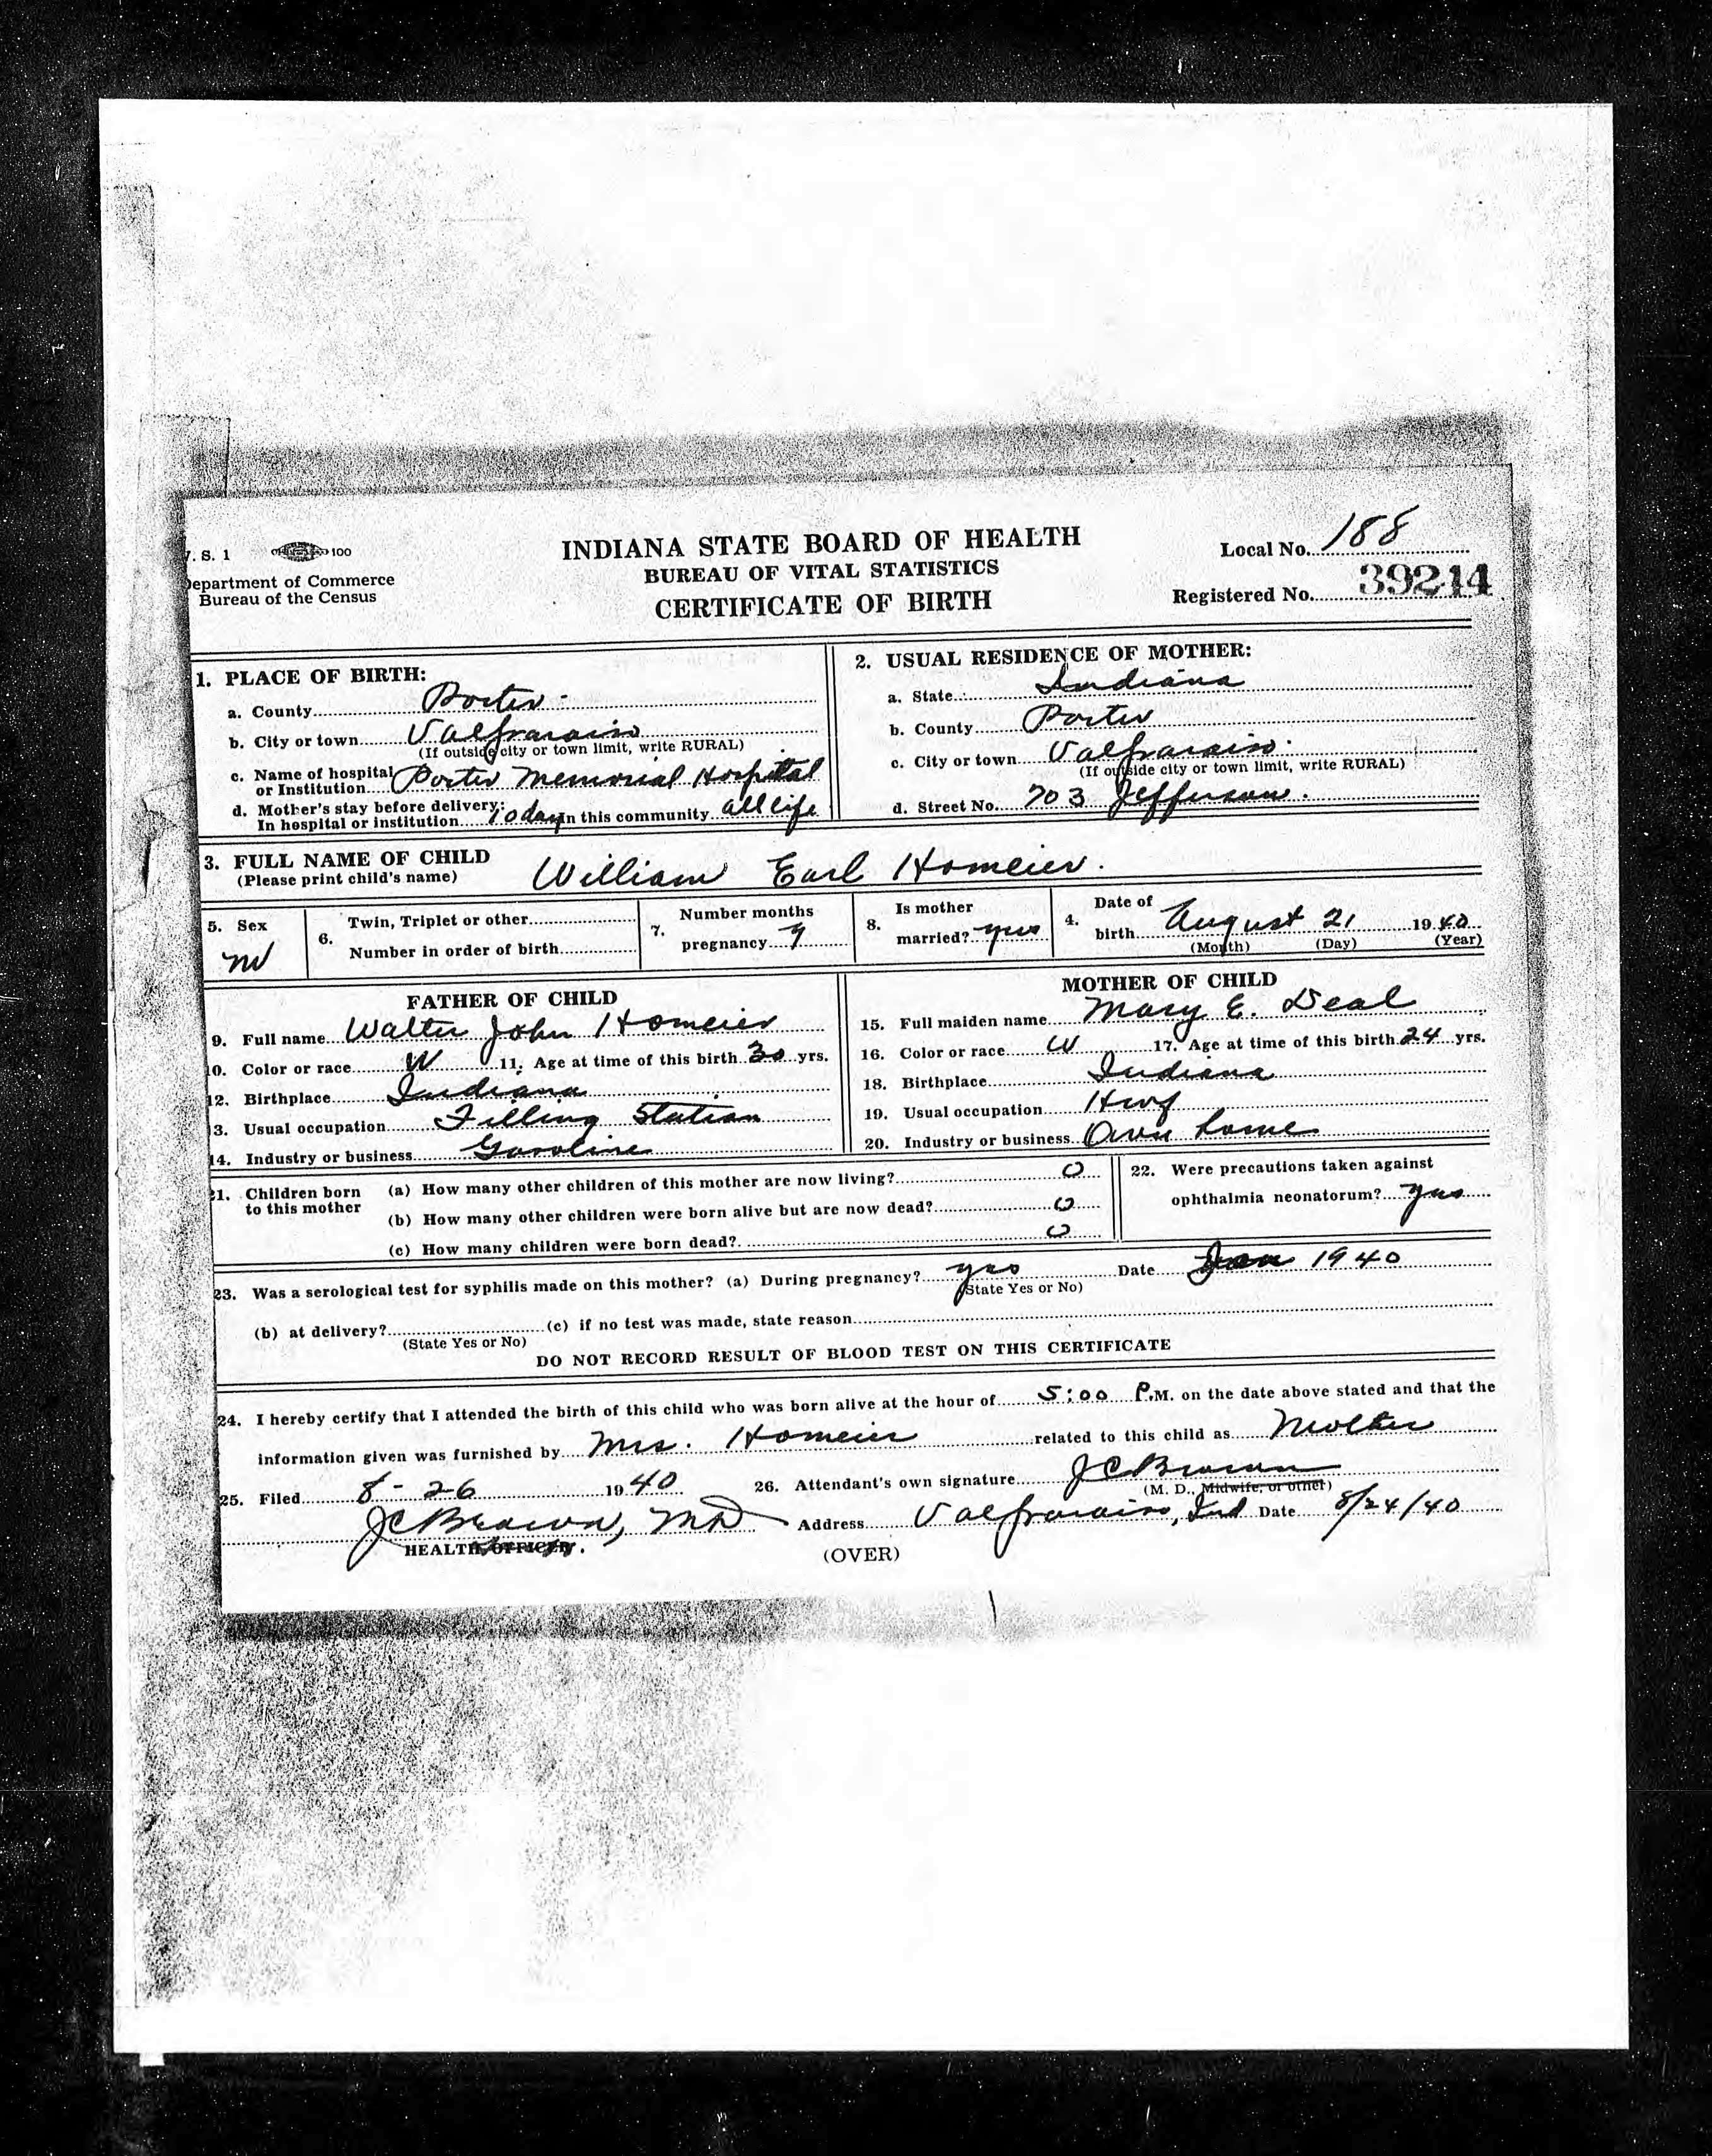 . S. 1 100
epartment of Commerce
Bureau of the Census
INDIANA STATE BOARD OF HEALTH
BUREAU OF VITAL STATISTICS
CERTIFICATE OF BIRTH
Local No. 188
Registered No. 39214
1. PLACE OF BIRTH:
a. County Porter
b. City or town Valparaiso
(If outside city or town limit, write RURAL)
c. Name of hospital
or Institution Porter Memorial Hospital
d. Mother's stay before delivery:
In hospital or institution day In this community all life
2. USUAL RESIDENCE OF MOTHER:
a. State Indiana
b. County Porter
c. City or town Valparaiso
(If outside city or town limit, write RURAL)
d. Street No. 703 Jefferson
3. FULL NAME OF CHILD William Earl Homeier
(Please print child's name)
5. Sex M
6. Twin, Triplet or other
Number in order of birth
7. Number months
pregnancy 9
8. Is mother
married? yes
4. Date of
birth August 21 1940
(Month) (Day) (Year)
FATHER OF CHILD
9. Full name Walter John Homeier
10. Color or race W 11. Age at time of this birth 30 yrs.
12. Birthplace Indiana
13. Usual occupation Filling Station
14. Industry or business Gasoline
MOTHER OF CHILD
15. Full maiden name Mary E. Deal
16. Color or race W 17. Age at time of this birth 24 yrs.
18. Birthplace Indiana
19. Usual occupation Hwf
20. Industry or business Own home
21. Children born
to this mother
(a) How many other children of this mother are now living? 0
(b) How many other children were born alive but are now dead? 0
(c) How many children were born dead? 0
22. Were precautions taken against
ophthalmia neonatorum? yes
23. Was a serological test for syphilis made on this mother? (a) During pregnancy? yes Date Jan 1940
(State Yes or No)
(b) at delivery? (c) if no test was made, state reason
(State Yes or No)
DO NOT RECORD RESULT OF BLOOD TEST ON THIS CERTIFICATE
24. I hereby certify that I attended the birth of this child who was born alive at the hour of 5:00 P.M. on the date above stated and that the
information given was furnished by Mrs. Homeier related to this child as Mother
25. Filed 8-26 1940 26. Attendant's own signature JC Brown
(M. D., Midwife, or other)
JC Brown, MD Address Valparaiso, Ind Date 8/24/40
HEALTH OFFICER.
(OVER)